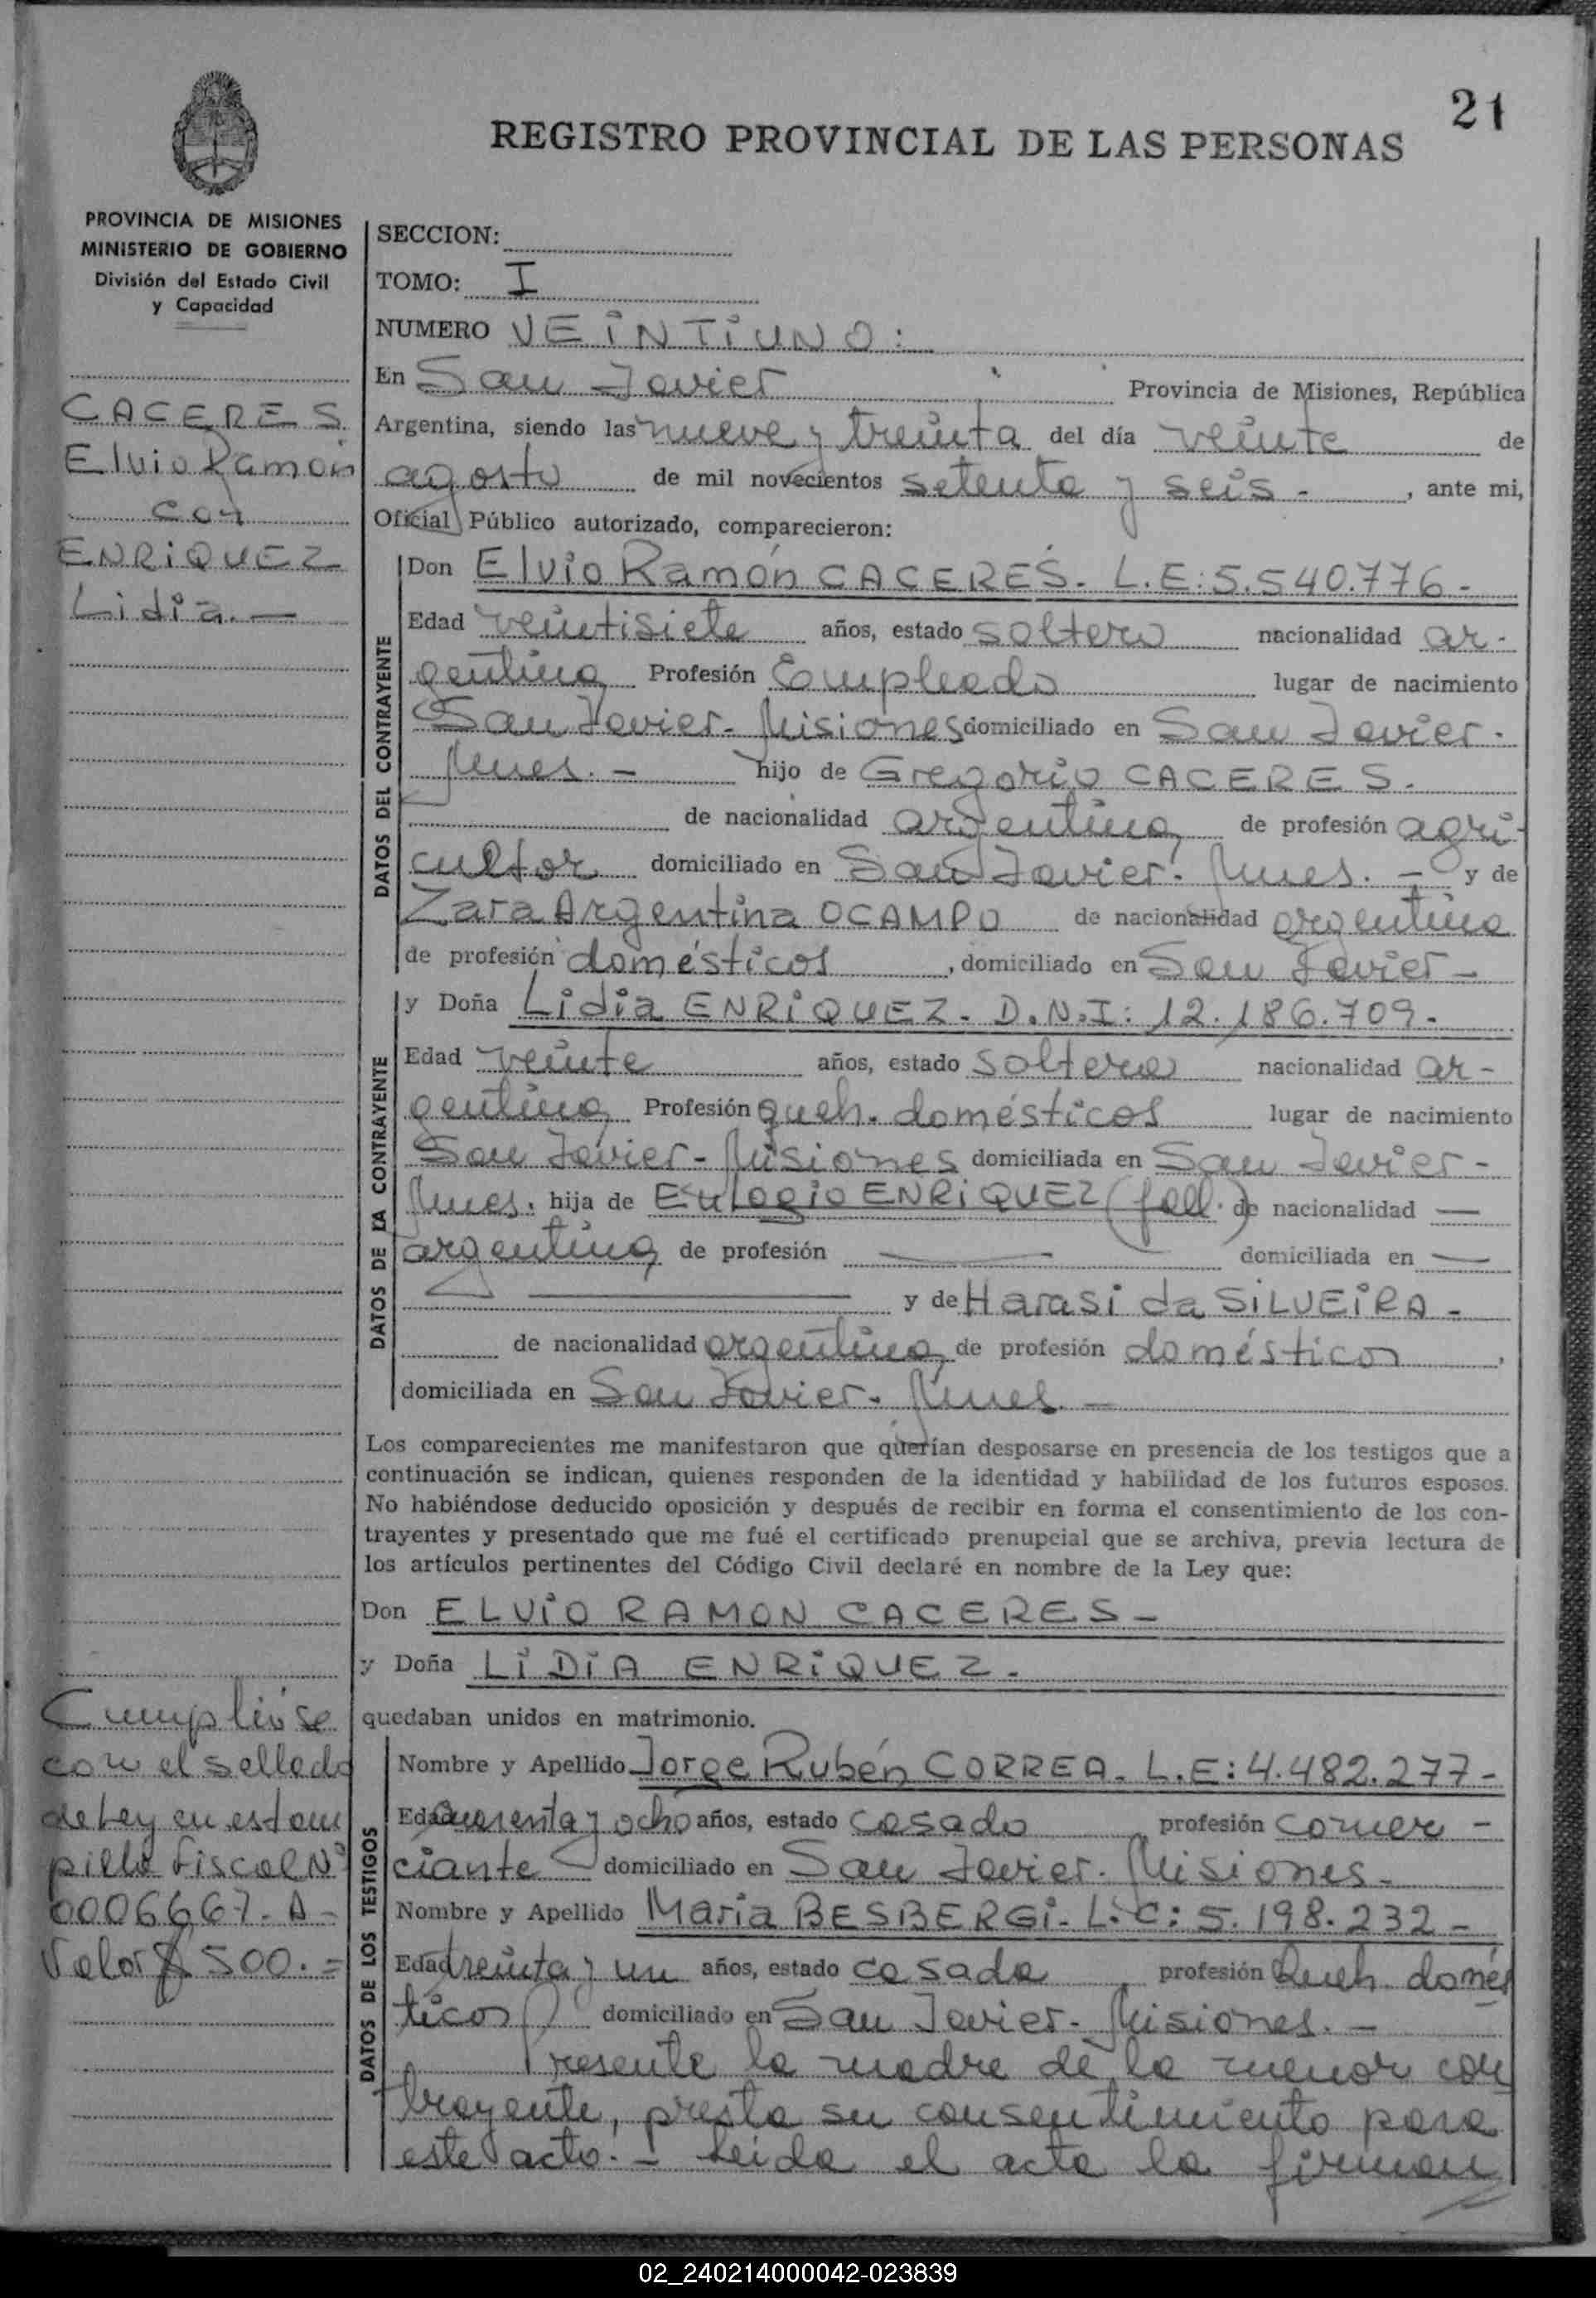 21
REGISTRO PROVINCIAL DE LAS PERSONAS
PROVINCIA DE MISIONES
MINISTERIO DE GOBIERNO
División del Estado Civil
y Capacidad
CACERES
Elvio Ramón
con
ENRIQUEZ
Lidia.—
Cumplióse
con el sellado
de Ley en estam
pilla Fiscal Nº
0006667-A-
Valor $ 500.=
SECCION:
TOMO: I
NUMERO VEINTIUNO:
En San Javier Provincia de Misiones, República
Argentina, siendo las nueve y treinta del día veinte de
agosto de mil novecientos setenta y seis - , ante mi,
Oficial Público autorizado, comparecieron:
DATOS DEL CONTRAYENTE
Don Elvio Ramón CACERES- L.E:5.540.776-
Edad veintisiete años, estado soltero nacionalidad ar-
gentina Profesión Empleado lugar de nacimiento
San Javier- Misiones domiciliado en San Javier-
Mnes.- hijo de Gregorio CACERES-
de nacionalidad argentina de profesión agri-
cultor domiciliado en San Javier- Mnes.- y de
Zara Argentina OCAMPO de nacionalidad argentina
de profesión domésticos , domiciliado en San Javier-
DATOS DE LA CONTRAYENTE
y Doña Lidia ENRIQUEZ- D.N.I: 12.186.709-
Edad veinte años, estado soltera nacionalidad ar-
gentina Profesión queh. domésticos lugar de nacimiento
San Javier- Misiones domiciliada en San Javier-
Mnes. hija de Eulogio ENRIQUEZ (fall.) de nacionalidad —
argentina de profesión — domiciliada en —
— y de Harasi da SILVEIRA-
de nacionalidad argentina de profesión domésticos ,
domiciliada en San Javier- Mnes.-
Los comparecientes me manifestaron que querían desposarse en presencia de los testigos que a
continuación se indican, quienes responden de la identidad y habilidad de los futuros esposos.
No habiéndose deducido oposición y después de recibir en forma el consentimiento de los con-
trayentes y presentado que me fué el certificado prenupcial que se archiva, previa lectura de
los artículos pertinentes del Código Civil declaré en nombre de la Ley que:
Don ELVIO RAMON CACERES-
y Doña LIDIA ENRIQUEZ-
quedaban unidos en matrimonio.
DATOS DE LOS TESTIGOS
Nombre y Apellido Jorge Rubén CORREA- L.E:4.482.277-
Edad cuarenta y ocho años, estado casado profesión comer-
ciante domiciliado en San Javier- Misiones-
Nombre y Apellido Maria BESBERGI- L.C:5.198.232-
Edad treinta y un años, estado casada profesión Queh. domés
ticos domiciliado en San Javier- Misiones.-
Presente la madre de la menor con
trayente, presta su consentimiento para
este acto.- Leida el acta la firman
02_240214000042-023839